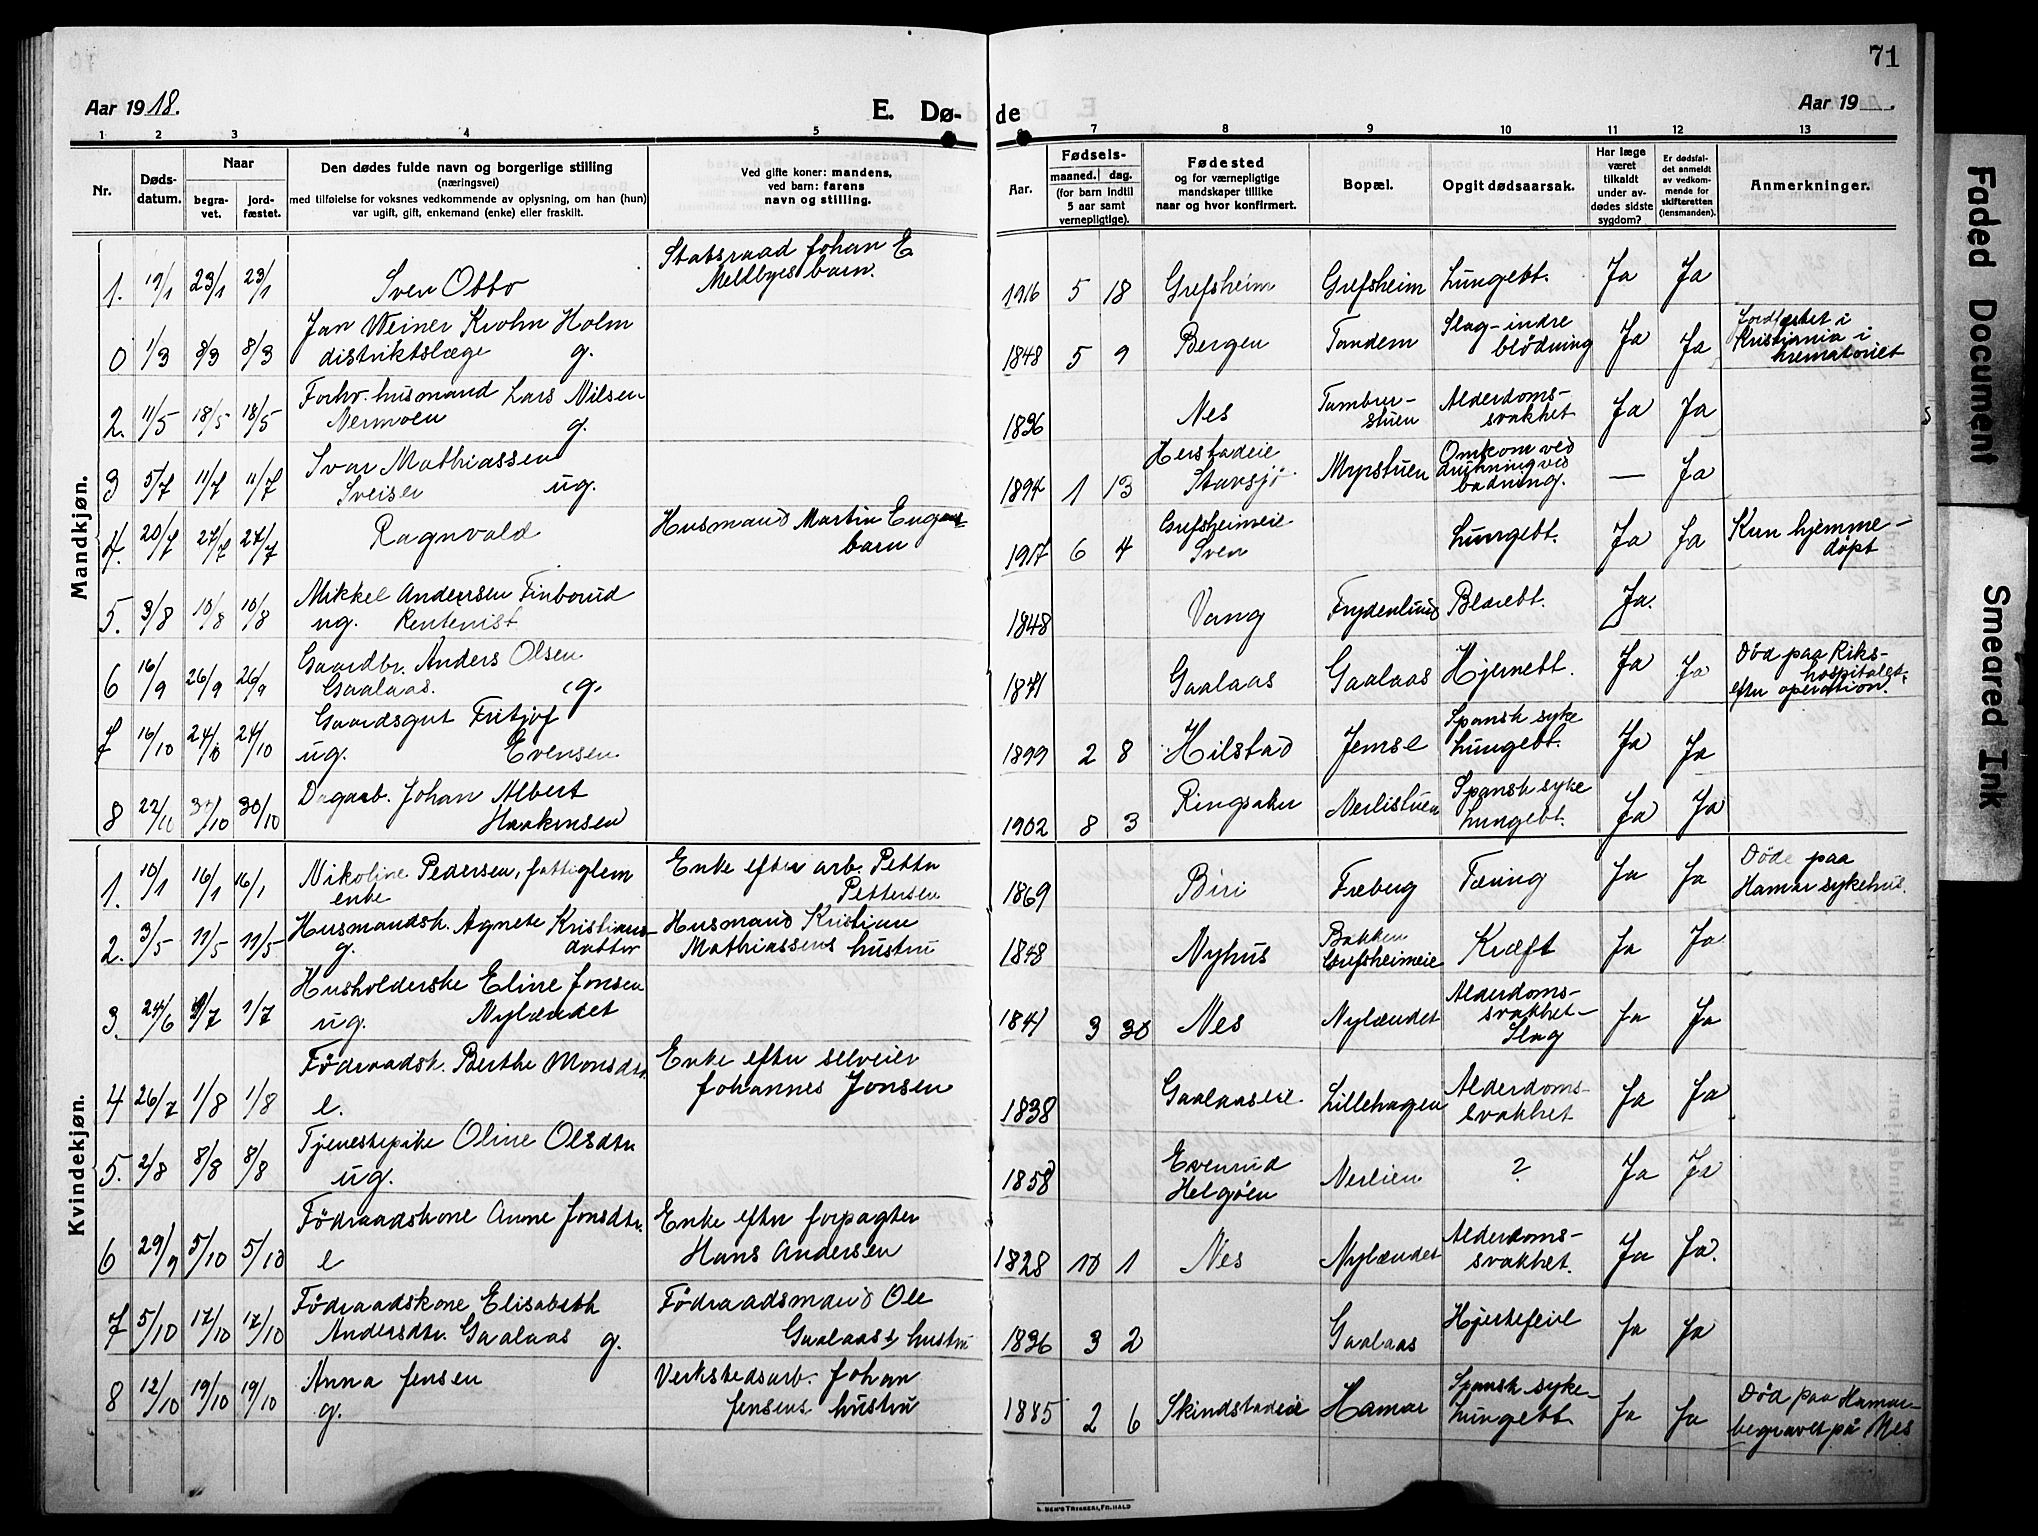 71
Aar 1918.
E. Dø-
de
Aar 19
1 2 3 4 5 7 8 9 10 11 12 13
Nr.
Døds-
datum.
Naar
begra-
vet.
jord-
fæstet.
Den dødes fulde navn og borgerlige stilling
(næringsvei)
med tilføielse for voksnes vedkommende av oplysning, om han (hun)
var ugift, gift, enkemand (enke) eller fraskilt.
Ved gifte koner: mandens,
ved barn: farens
navn og stilling.
Aar.
Fødsels-
maaned. dag.
(for barn indtil
5 aar samt
vernepligtige).
Fødested
og for værnepligtige
mandskaper tillike
naar og hvor konfirmert.
Bopæl.
Opgit dødsaarsak.
Har læge
været
tilkaldt
under av-
dødes sidste
sygdom?
Er dødsfal-
det anmeldt
av vedkom-
mende for
skifteretten
(lensmanden).
Anmerkninger.
Mandkjøn.
1. 19/1 23/1 23/1 Sven Otto
Statsraad Johan E
Mellbyes barn.
1916 5 18 Grefsheim Grefsheim Lungebt. Ja Ja
0 1/3 8/3 8/3 Jan Weiner Krohn Holm
distriktslæge g.
1848 5 9 Bergen Tandem Slag-indre
blödning Ja Ja
Jordfæstet i
Kristiania i
krematoriet
2. 11/5 18/5 18/5 Forhv. husmand Lars Nilsen
Nermoen g.
1836 Nes Tambur-
stuen Alderdoms-
svakhet Ja Ja
3 5/7 11/7 11/7 Ivar Mathiassen
Sveiser ug.
1894 1 13 Herstadeie
Stavsjø Myrstuen Omkom ved
drukning ved
badning. — Ja
4. 20/7 27/7 27/7 Ragnvald
Husmand Martin Engens
barn
1917 6 4 Grefsheimeie
Sven Lungebt. Ja Ja Kun hjemme-
døpt
5. 3/8 10/8 10/8 Mikkel Andersen Finborud
ug. Rentenist
1848 Vang Frydenlund Blærebt. Ja.
6 16/9 26/9 26/9 Gaardbr. Anders Olsen
Gaalaas. g.
1871 Gaalaas Gaalaas Hjernebt. Ja Ja Død paa Riks-
hospitalet
efter operation.
7 16/10 24/10 24/10 Gaardsgut Fritjof
ug. Evensen
1899 2 8 Hilstad Jemse Spansk syke
Lungebt. Ja Ja
8 22/10 30/10 30/10 Dagarb. Johan Albert
Haakensen
1902 8 3 Ringsaker Nerlistuen Spansk syke
Lungebt. Ja Ja
Kvindekjøn.
1. 10/1 16/1 16/1 Nikoline Pedersen, fattiglem
enke
Enke efter arb. Petter
Pettersen
1869 Biri Freberg Tæring Ja Ja Døde paa
Hamar sykehus.
2. 3/5 11/5 11/5 Husmandsk. Agnete Kristians-
g. datter
Husmand Kristian
Mathiassens hustru
1848 Nyhus Bakken
Grefsheimeie Kræft Ja Ja
3. 24/6 1/7 1/7 Husholderske Eline Jonsen
ug. Nylændet
1841 3 30 Nes Nylændet Alderdoms-
svakhet-
Slag Ja Ja
4 26/7 1/8 1/8 Föderaadsk. Berthe Monsdtr.
e.
Enke efter selveier
Johannes Jonsen
1838 Gaalaaseie Lillehagen Alderdoms-
svakhet Ja Ja
5. 2/8 8/8 8/8 Tjenestepike Oline Olsdtr
ug.
1858 Evenrud
Helgöen Nerlien ? Ja Ja
6 29/9 5/10 5/10 Föderaadskone Anne Jonsdtr.
e
Enke efter forpagter
Hans Andersen
1828 10 1 Nes Nylændet Alderdoms-
svakhet. Ja Ja.
7 5/10 17/10 17/10 Föderaadskone Elisabeth
Andersdtr. Gaalaas g.
Föderaadsmand Ole
Gaalaass hustru
1836 3 2 Gaalaas Hjertefeil Ja Ja
8 12/10 19/10 19/10 Anna Jensen
g.
Verkstedsarb. Johan
Jensens hustru
1885 2 6 Skindstadeie Hamar Spansk syke-
Lungebt. Ja Ja Død paa Hamar-
begravet på Nes
Faded Document
Smeared Ink